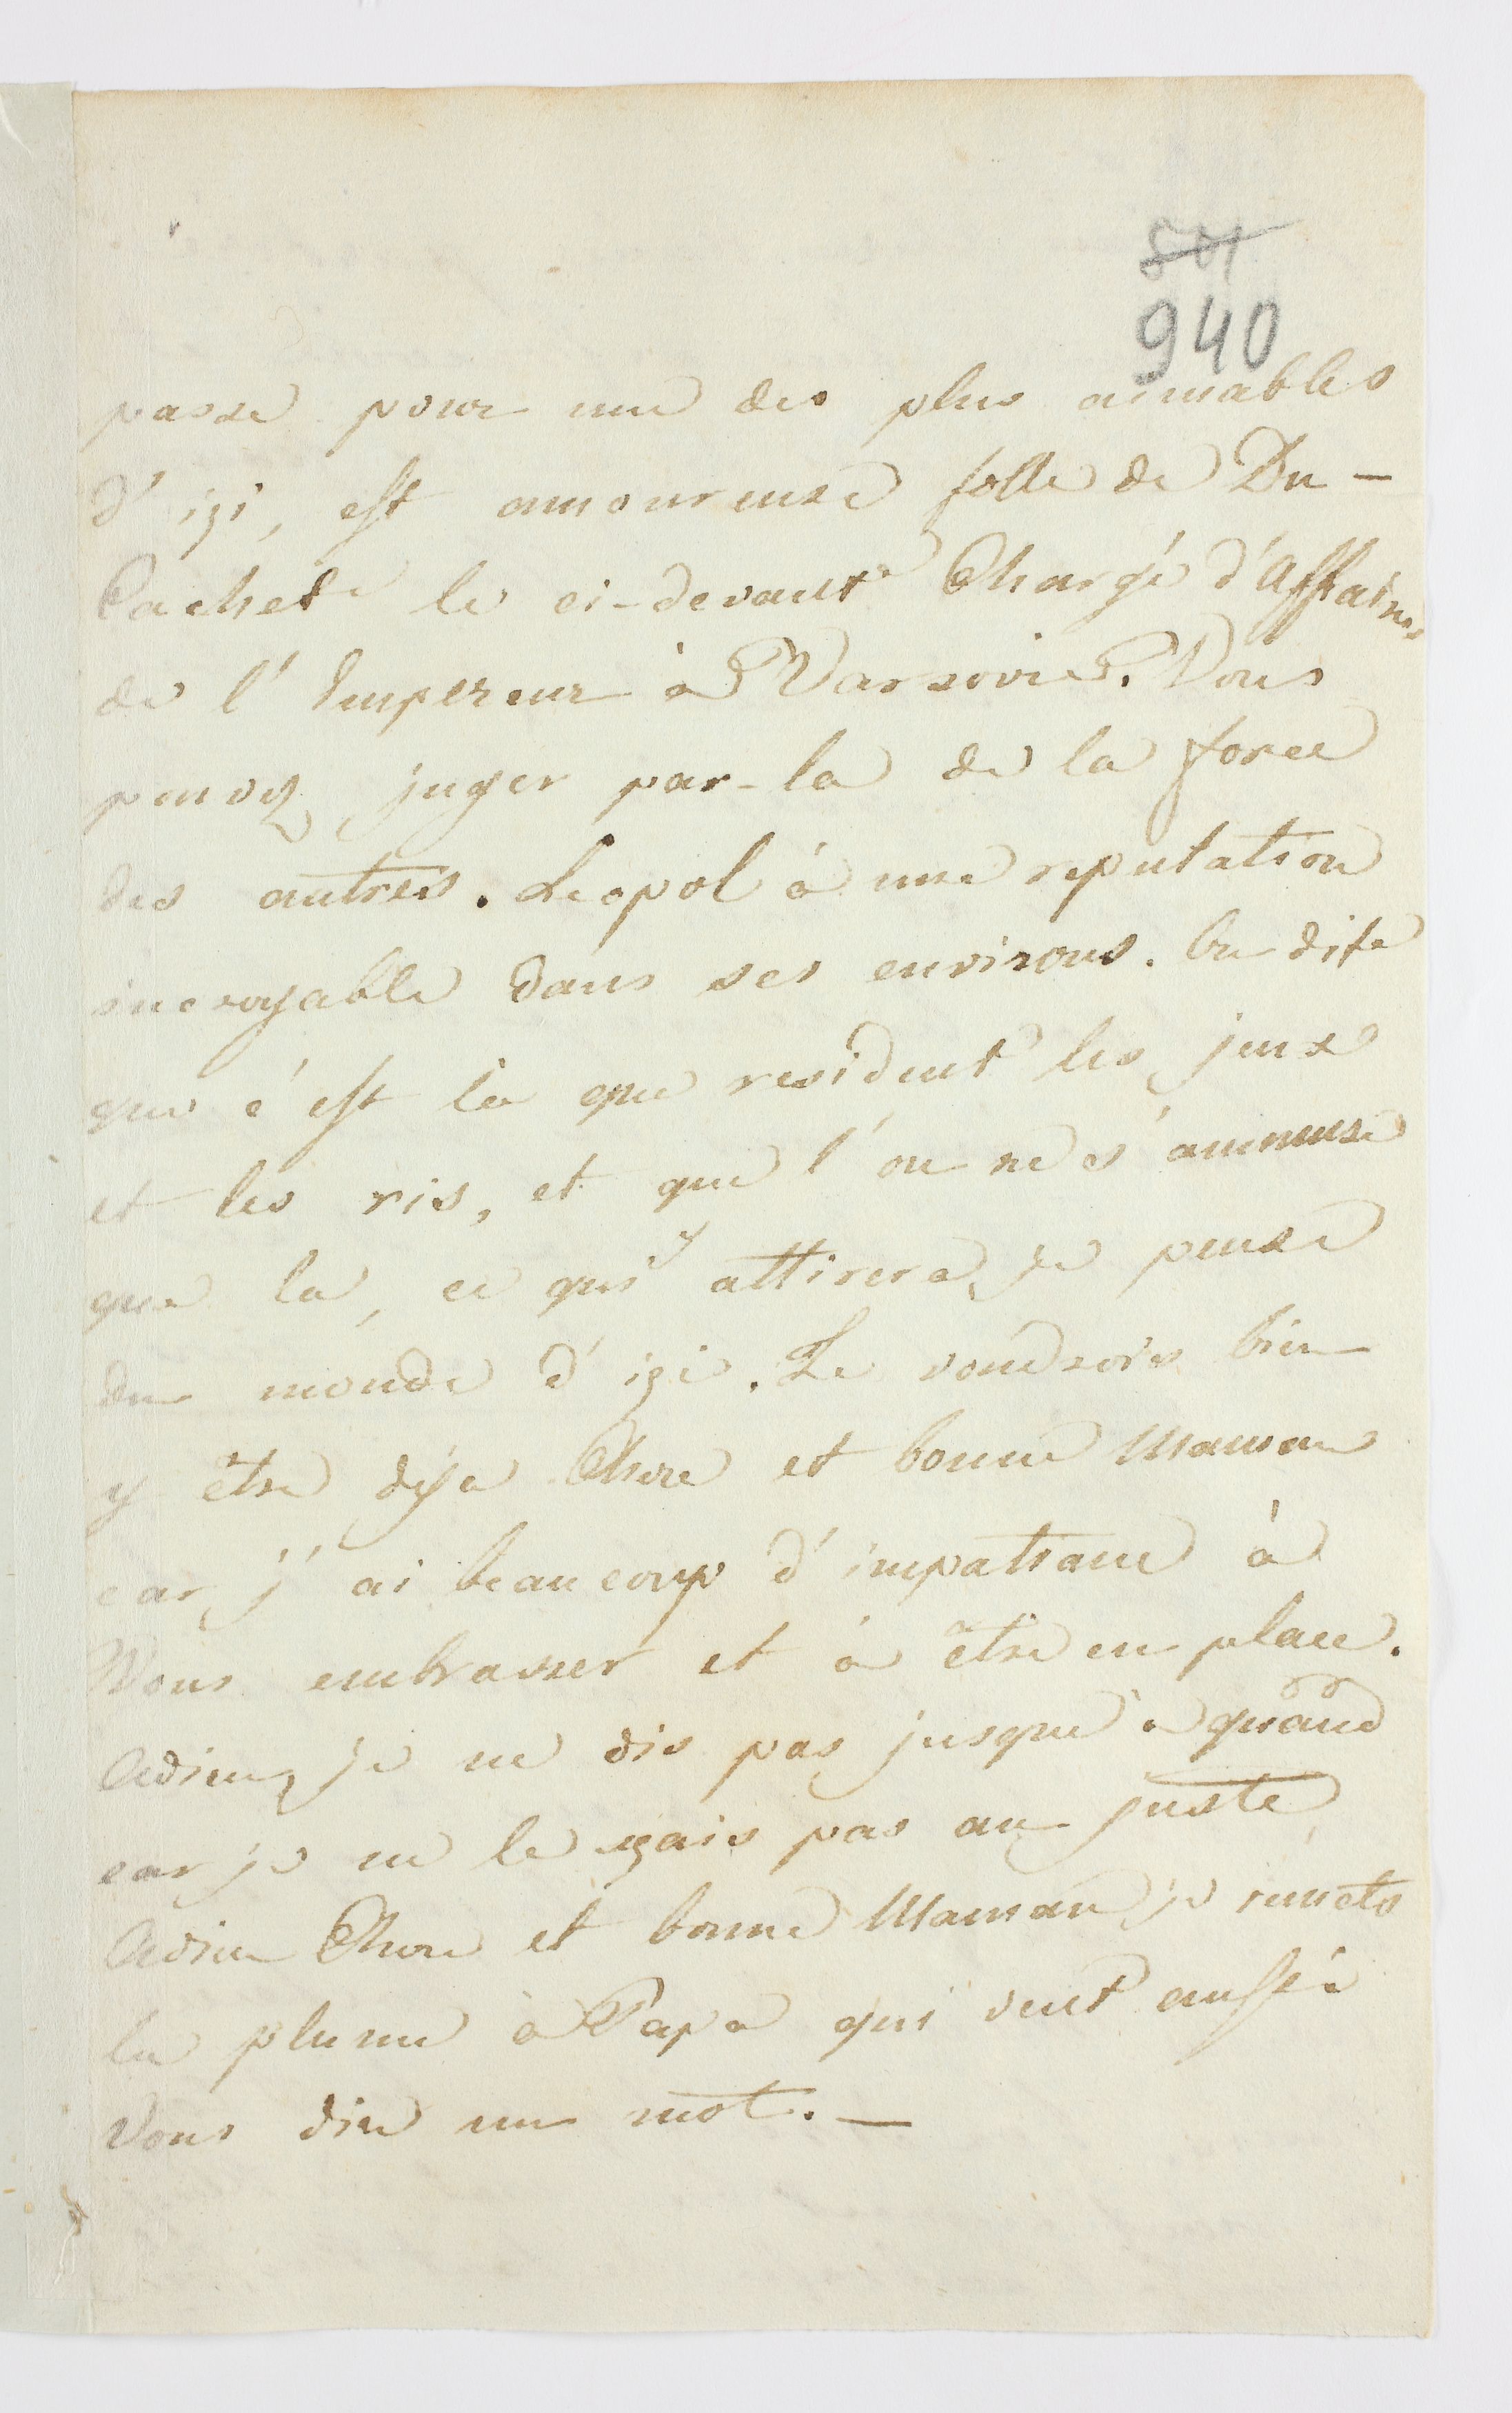 501
940
passe pour une des plus aimables
d'içi, est amoureuse folle de Du-
Cachet le ci-devant Chargé d'Affaires
de l'Empereur à Varsovie. Vous
pouvez juger par-la de la force
des autres. Leopol à une reputation
incroyable dans ses environs. On dite
que c'est là que resident les jeux
et les ris, et que l'on ne s'ammuse
que la, ce qui y attirera, je pense
du monde d'içi. Je voudrois bien
y être deja Chere et bonne Maman
car j'ai beaucoup d'impatiance à
Vous embrasser et à être en place.
Adieu, je ne dis pas jusque à quand
car je ne le sçais pas au juste
Adieu Chere et bonne Maman je remets
la plume à Papa qui veut aussi
Vous dire un mot.—